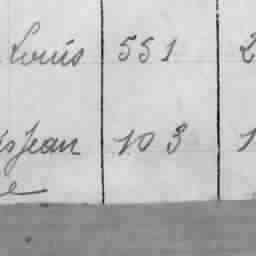 Louis 551 2
Jean 103 1